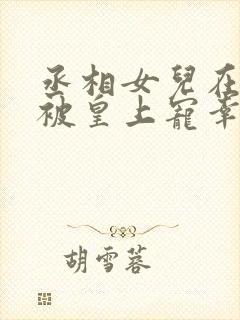 丞相女兒在
被皇上寵幸
胡雪蓉